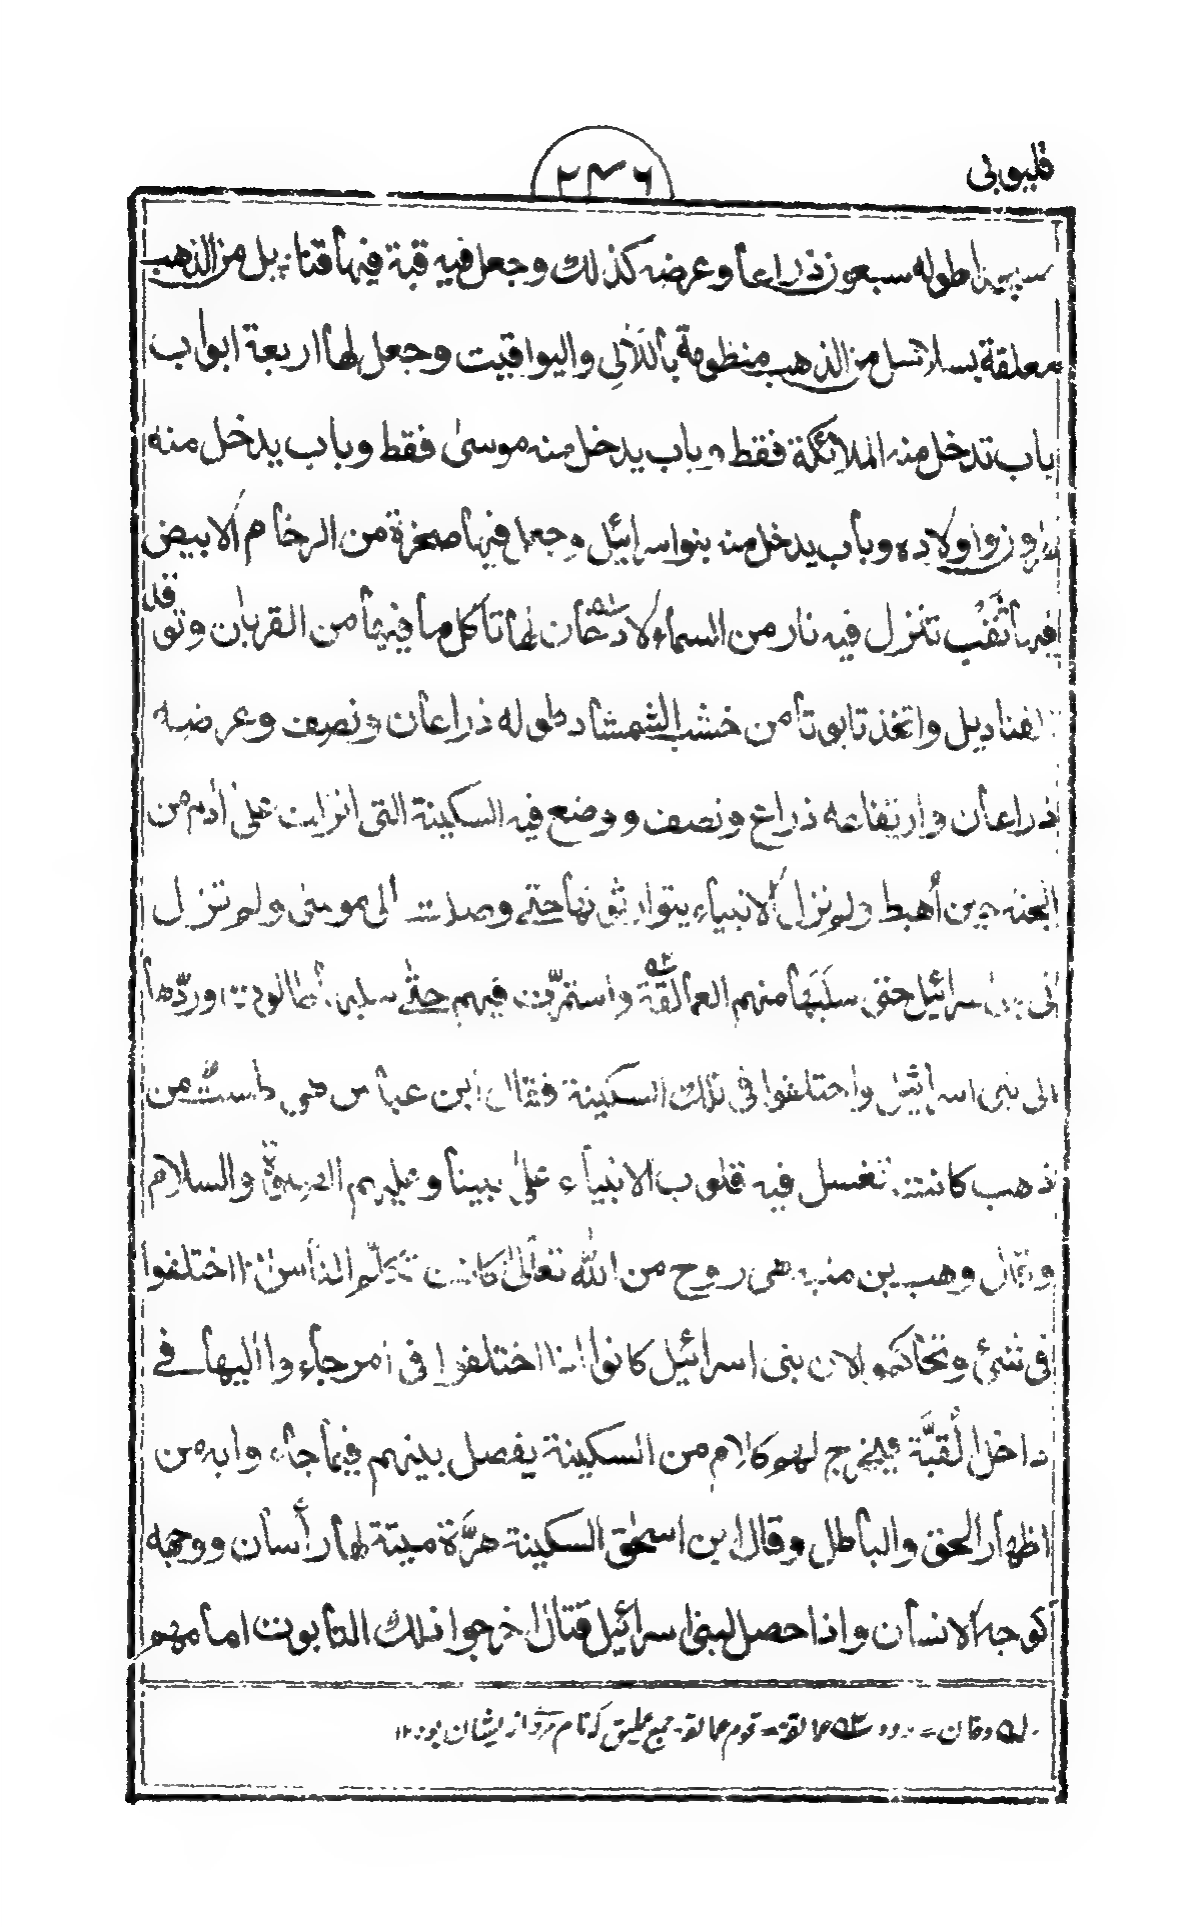 قليوبى
٢٣٦
طوله سبعون ذراعا وعرضه كذلك وجعل فيه قبة فيها قناديل من الذهب
معلقة بسلاسل من الذهب منظومة باللآلى واليواقيت وجعل لها اربعة ابواب
باب تدخل منه الملائكة فقط وباب يدخل منه موسىٰ فقط وباب يدخل منه
واولاده وباب يدخل منه بنواسرائيل وجعل فيها صخرة من الرخام الابيض
فيها ثقب تنزل فيه نار من السماء لا دخان لها تاكل ما فيها من القربان وتوقد
القناديل واتخذ تابوتا من خشب الشمشاد طوله ذراعان ونصف وعرضه
ذراعان وارتفاعه ذراع ونصف ووضع فيه السكينة التى انزلت علىٰ اٰدم من
الجنة حين اُهبط ولم تزل الانبياء يتوارثونها حتے وصلت الى موسٰى ولم تزل
فى بنى اسرائيل حتى سلبها منهم العمالقة واستمرّت فيهم حتّٰے طالوت وردّها
الى بنى اسرائيل واختلفوا فى تلك السكينة فقال ابن عباس هى طست من
ذهب كانت تغسل فيه قلوب الانبياء علىٰ نبينا وعليهم الصلوٰة والسلام
وقال وهب بن منبه هى روح من اللّٰه تعالىٰ كانت تكلّم الناس اذا اختلفوا
فى شئ وتحاكموا لان بنى اسرائيل كانوا اذا اختلفوا فى امر جاءوا اليها فے
داخل القبَّة فيخرج لهم كلام من السكينة يفصل بينهم فيما جاءوا به من
اظهار الحق والباطل وقال ابن اسحٰق السكينة هرَّة ميتة لها رأسان ووجهه
كوجه الانسان واذا حصل لبنى اسرائيل قتال اخرجوا ذلك التابوت امامهم
عمالقة = قوم عمالقه جمع عمليق كه نام مردى از ايشان بود ١٢